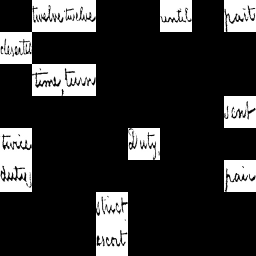 twelve twelve until part
clever
time, turn
sent
twice duty,
duty, pair
strict
escort